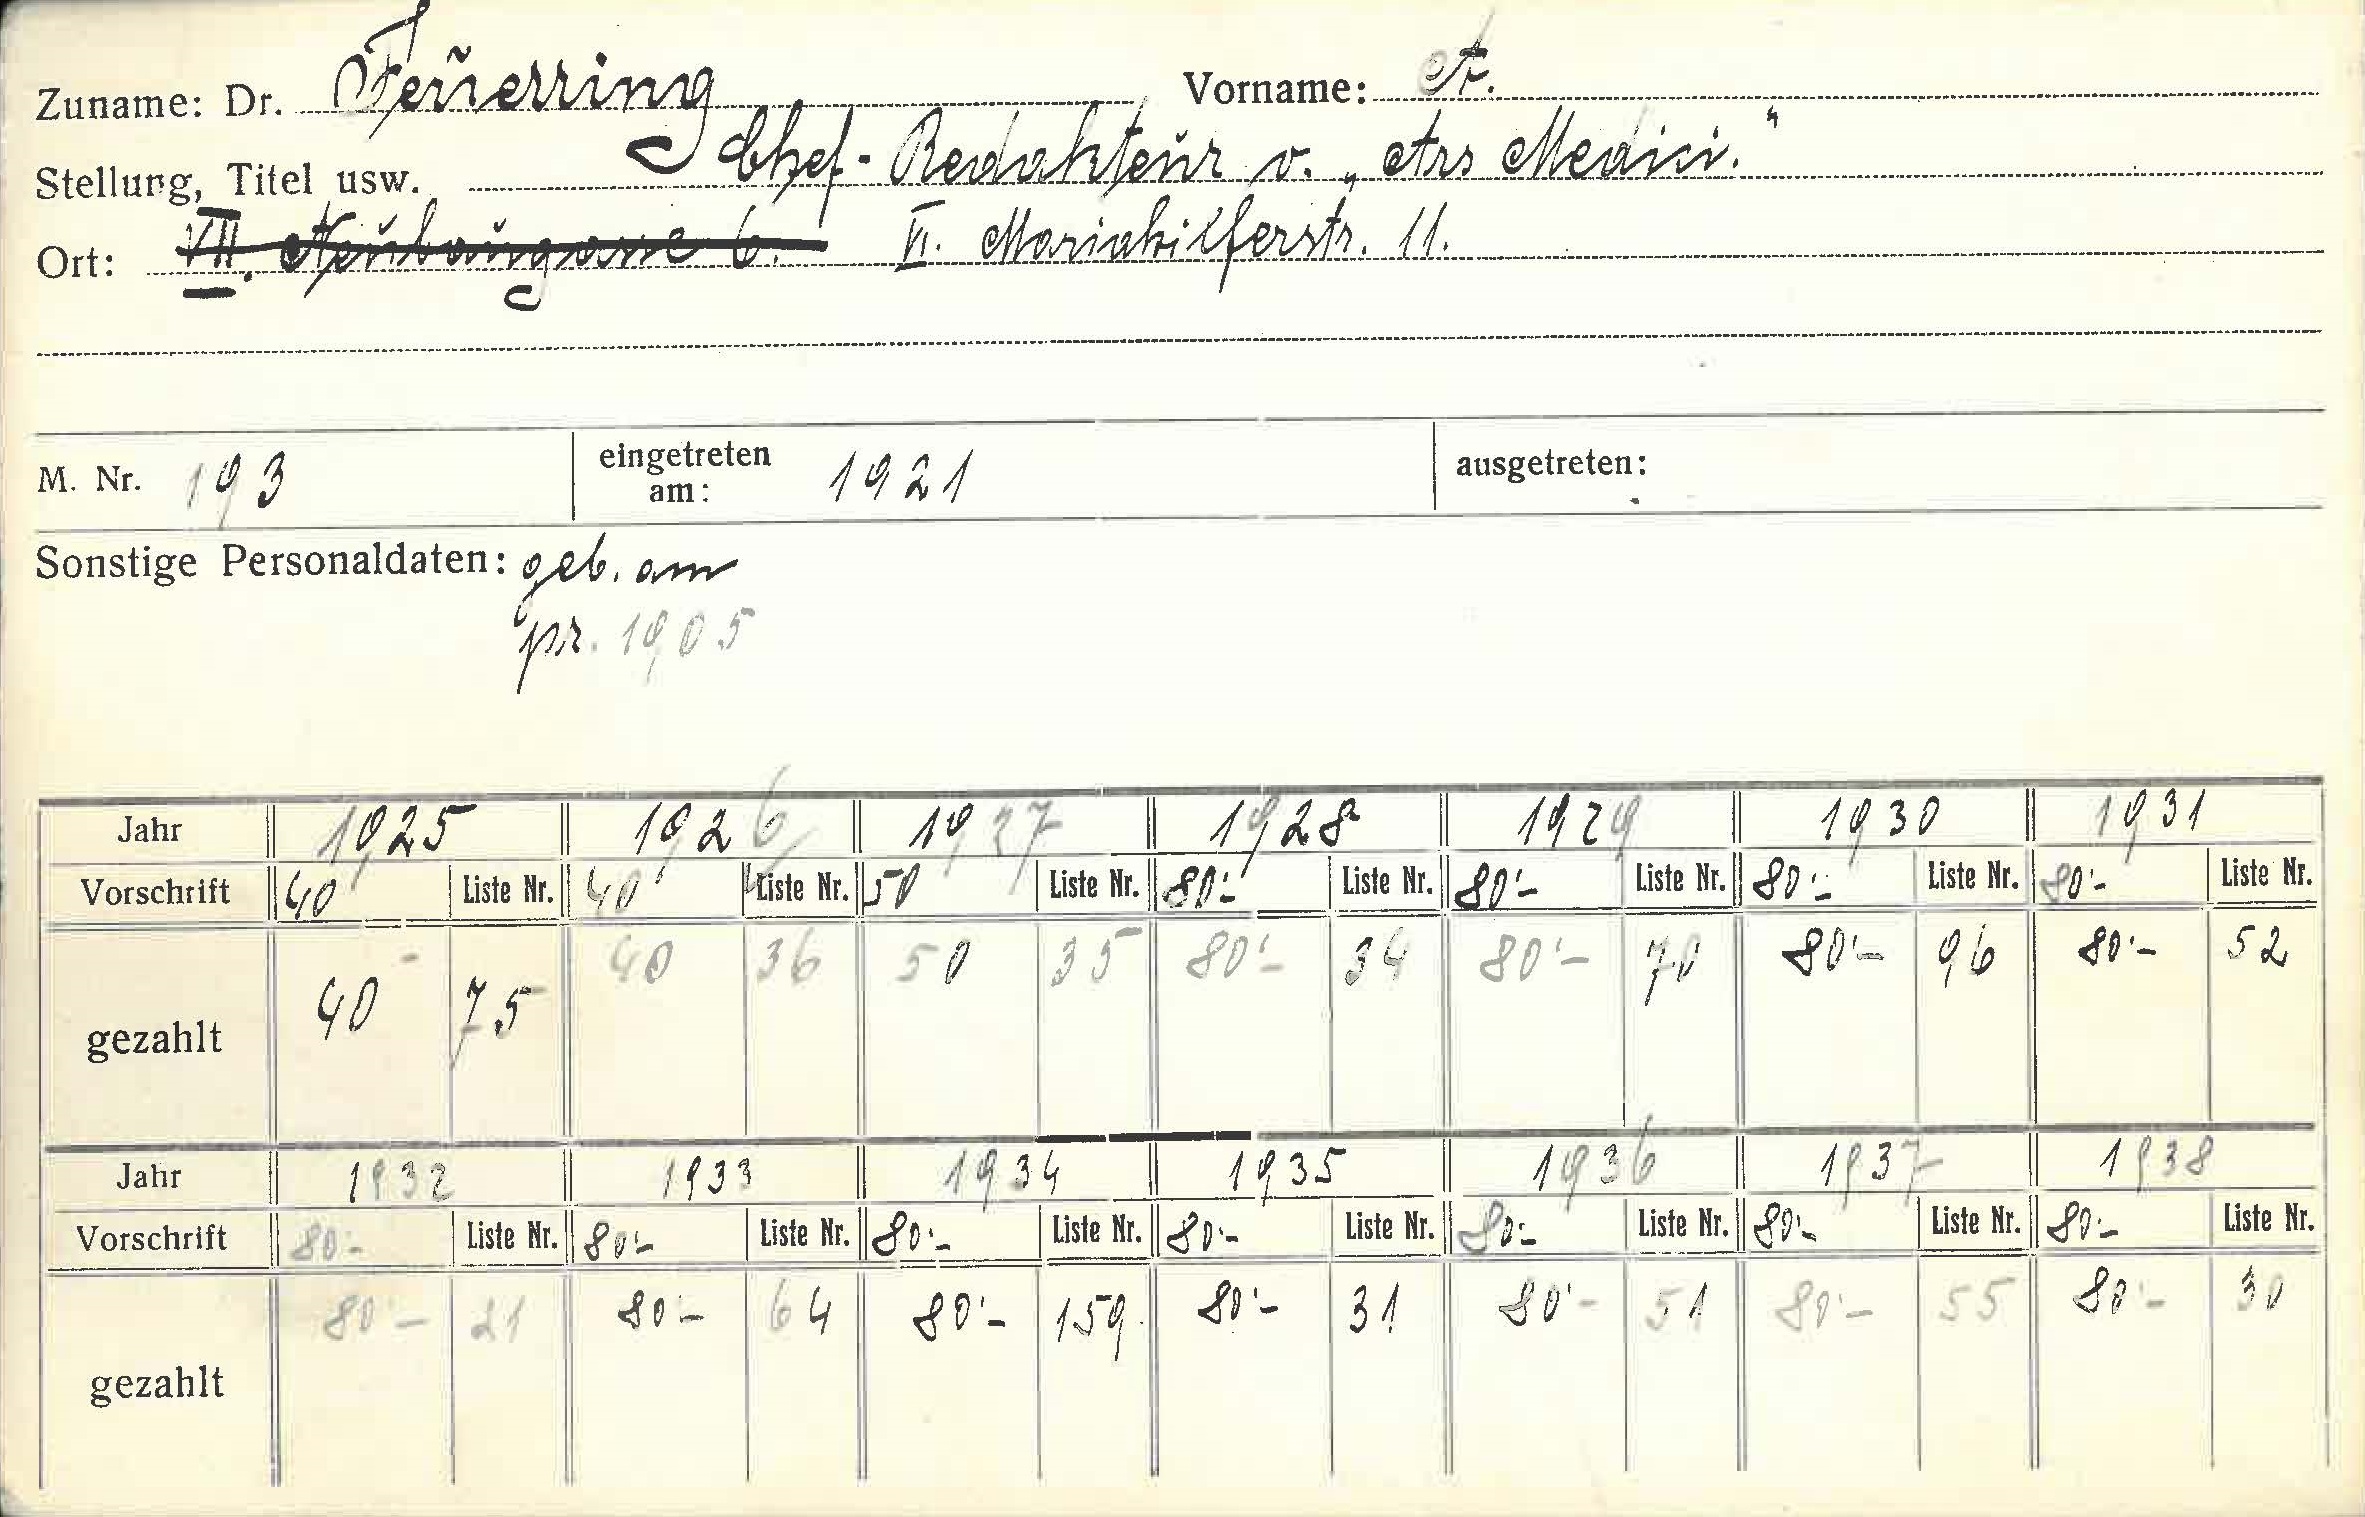 Zuname: Dr. Feuerring Vorname: A.
Stellung, Titel usw. Chef-Redakteur v. „Ars Medici."
Ort: VII. Neubaugasse 6. VI. Mariahilferstr. 11.
M. Nr. 193 eingetreten am: 1921 ausgetreten:
Sonstige Personaldaten: geb. am
pr. 1905
Jahr 1925 1926 1927 1928 1929 1930 1931
Vorschrift 40 Liste Nr. 40 Liste Nr. 50 Liste Nr. 80'- Liste Nr. 80'- Liste Nr. 80'- Liste Nr. 80'- Liste Nr.
gezahlt 40 75 40 36 50 35 80'- 34 80'- 70 80'- 96 80'- 52
Jahr 1932 1933 1934 1935 1936 1937 1938
Vorschrift 80'- Liste Nr. 80'- Liste Nr. 80'- Liste Nr. 80'- Liste Nr. 80'- Liste Nr. 80'- Liste Nr. 80'- Liste Nr.
gezahlt 80'- 21 80'- 64 80'- 159 80'- 31 80'- 51 80'- 55 80'- 30